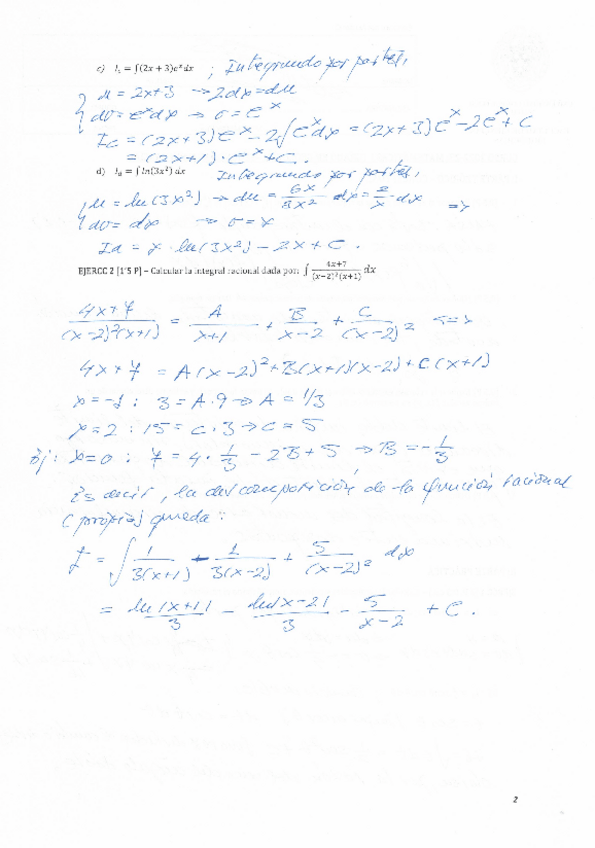 c) I_c = ∫(2x + 3)e^x dx ; Integrando por partes,
{ u = 2x+3 → 2dx = du
{ dv = e^x dx → v = e^x
I_c = (2x+3)e^x - 2∫e^x dx = (2x+3)e^x - 2e^x + C
= (2x+1)·e^x + C.
d) I_d = ∫ ln(3x²) dx Integrando por partes,
{ u = ln(3x²) → du = 6x/3x² dx = 2/x dx =>
{ dv = dx → v = x
I_d = x·ln(3x²) - 2x + C.
EJERCC 2 [1'5 P] – Calcular la integral racional dada por: ∫ (4x+7)/((x−2)²(x+1)) dx
(4x+7)/((x-2)²(x+1)) = A/(x+1) + B/(x-2) + C/(x-2)² <=>
4x+7 = A(x-2)² + B(x+1)(x-2) + C(x+1)
x=-1 : 3 = A·9 → A = 1/3
x=2 : 15 = C·3 → C = 5
Ej: x=0 : 7 = 4·1/3 - 2B + 5 → B = -1/3
Es decir, la descomposición de la función racional
(propia) queda:
I = ∫ 1/(3(x+1)) - 1/(3(x-2)) + 5/(x-2)² dx
= ln|x+1|/3 - ln|x-2|/3 - 5/(x-2) + C.
2